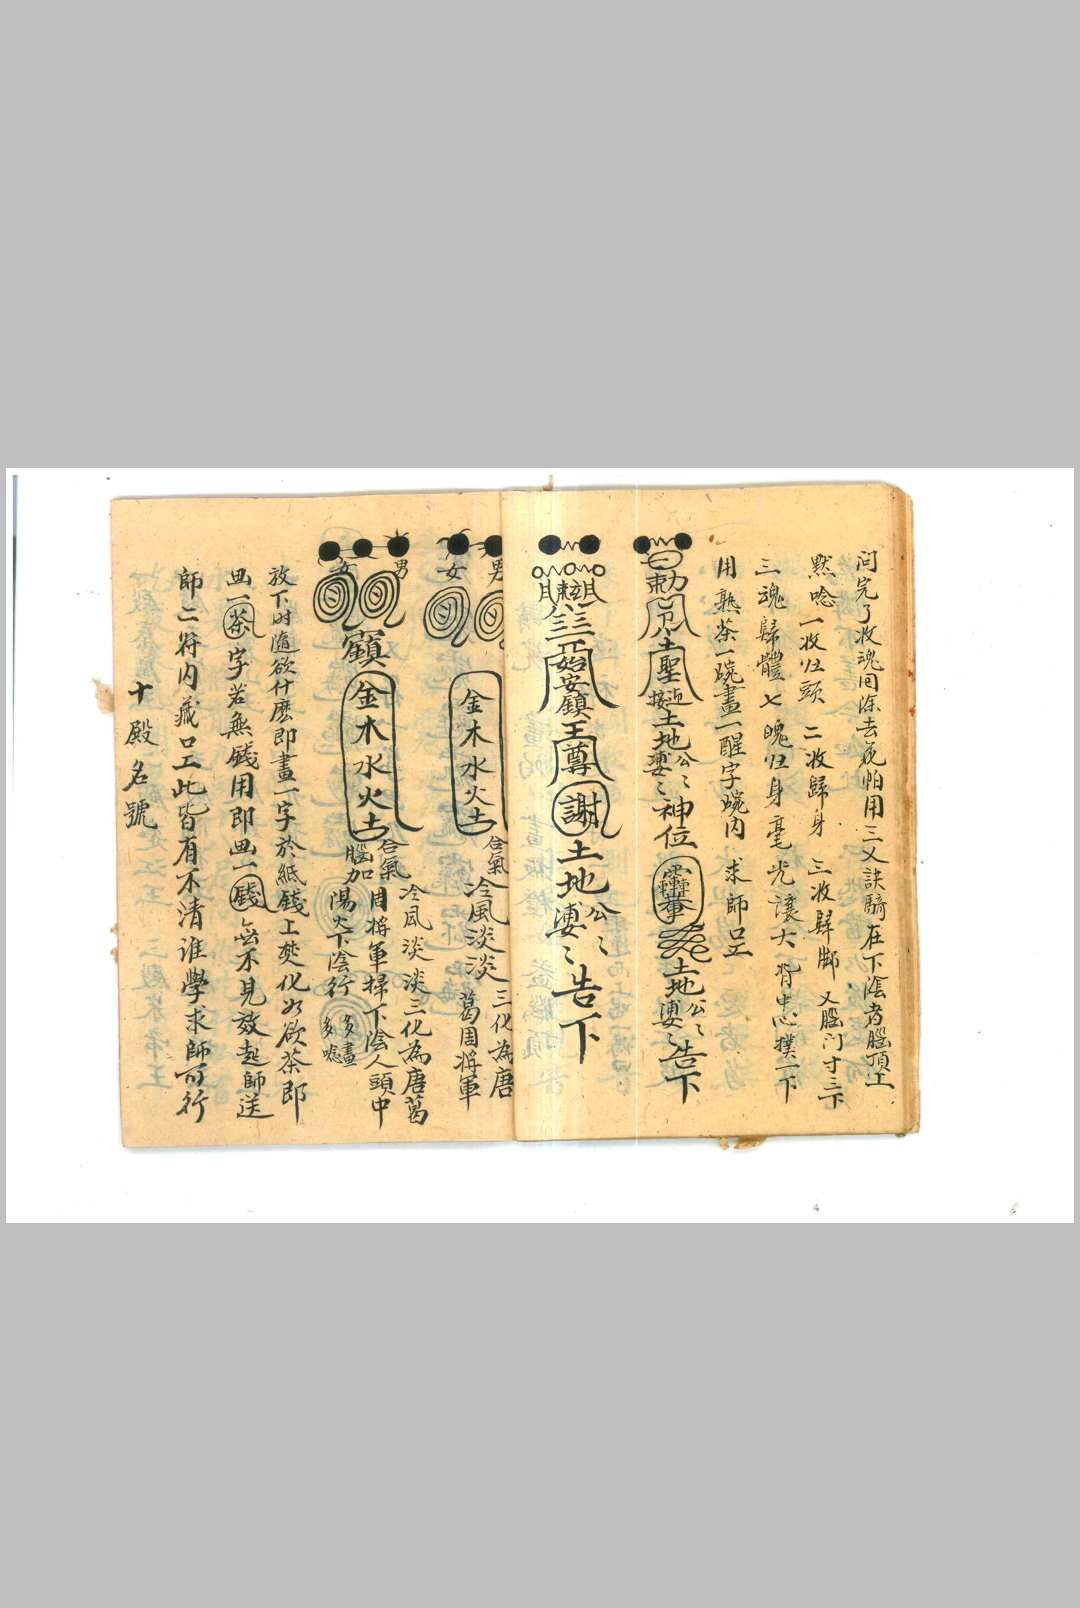 问完了收魂回除去苑帕用三义訣騎在下陰者腦頂上
黙唸一收归頭 二收歸身 三收歸脚 又腦门寸三下
三魂歸體七魄归身毫光讓大背中心撲一下
用熟茶一碗畫一醒字碗内 求師口工
勅
聖
接近
土地公婆神位
土地公婆告下
安鎮
王尊
謝
土地公婆告下
男
女
金木水火土
合氣
冷風淡淡三化為唐
葛周將軍
男
女
鎮
金木水火土
合氣冷風淡淡三化為唐葛
周將軍掃下陰人頭中
腦加陽火下陰行
多畫
多唸
放下时隨欲什麽即畫一字於紙錢上焚化如欲茶即
画一茶字若無錢用即画一錢 不見效起師送
師二符内藏口工此皆有不清谁學求師可行
十殿名號